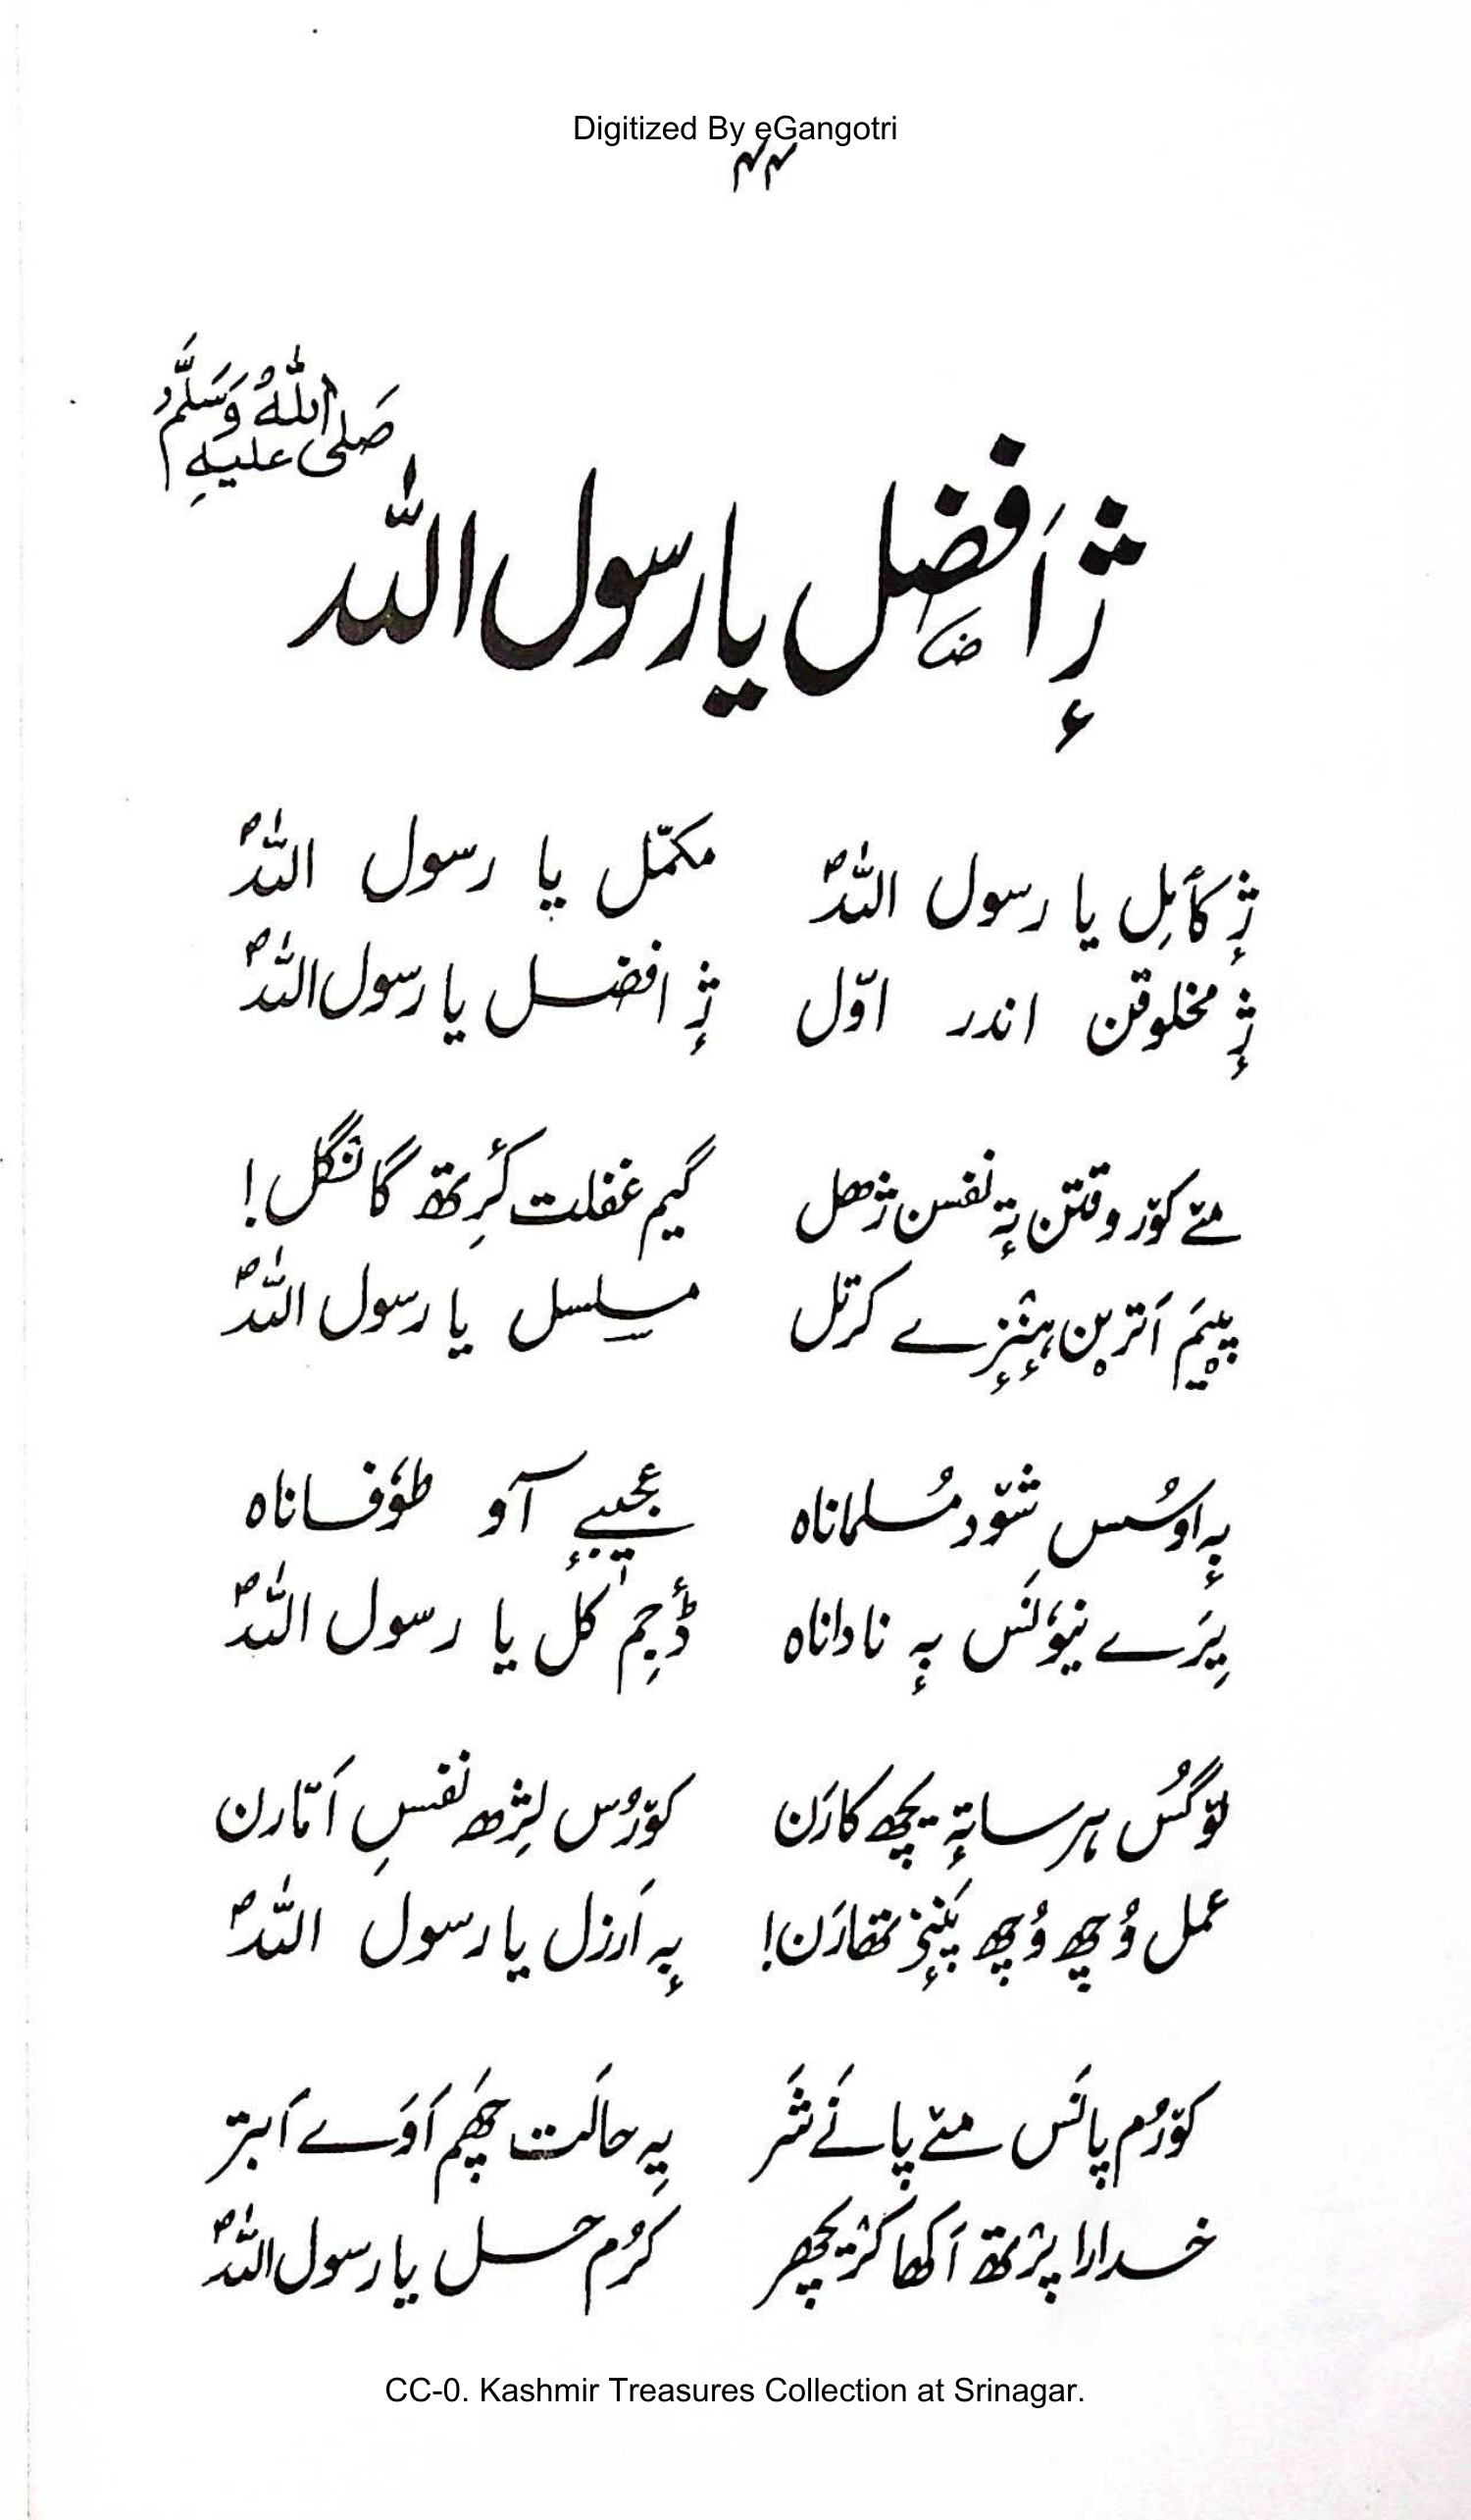 Digitized By eGangotri
۴۴
صَلی اللہُ علیہِ وَسَلَّم
ژٕ اَفضل یا رسول اللہ
ژٕ کأمِل یا رسول اللہؐ مکمّل یا رسول اللہؐ
ژٕ مخلوقن اندر اوّل ژٕ افضل یا رسول اللہؐ
مےٚ کوٚر وقتن تہٕ نفسن ژھل گیم غفلت کٔرِتھ گانگل!
پیم اَتربن ہنٛزے کرتل مسلسل یا رسول اللہؐ
بہٕ اوسُس شوٚد مُسلماناہ عجیبے آو طوٗفاناہ
یِرَے نیوٗنَس بہٕ ناداناہ ڈٔجِم کَل یا رسول اللہؐ
لوٚگسُ ہر ساتہٕ یچھ کارَن کوٚرُس لِژھ نفسِ اَمّارن
عمل وُچھ وُچھ پنٕنۍ تھارَن! بہٕ اَرزل یا رسول اللہؐ
کوٚرُم پانَس مےٚ پانَے شَر یہِ حالَت چھَم اَوَے اَبتر
خدارا پرٛتھ اَکھا کرٛیچھر کَرُم حل یا رسول اللہؐ
CC-0. Kashmir Treasures Collection at Srinagar.